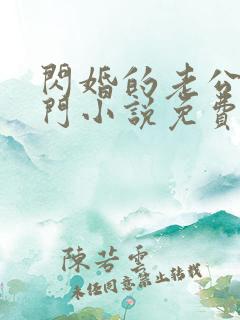 閃婚的老公
門小說免費
陳若雲
未经同意禁止转载